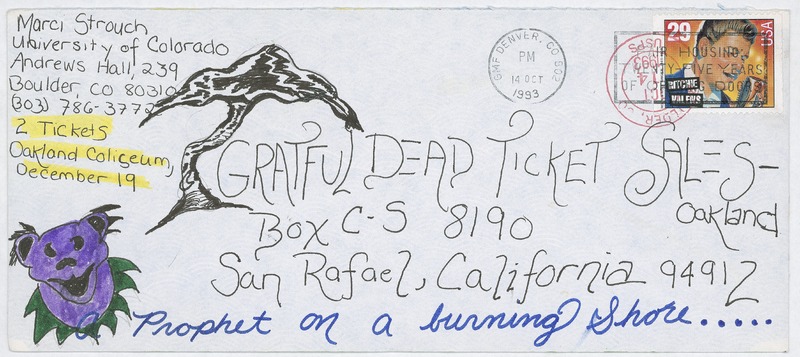 Marci Strouch
University of Colorado
Andrews Hall, 239
Boulder, CO 80310
(303) 786-3772
2 Tickets
Oakland Coliseum,
December 19
GMF DENVER, CO 802
PM
14 OCT
1993
29
USA
RITCHIE
VALENS
HOUSING
YEARS
OF DOORS
USPS
1993
GRATFUL DEAD TICKET SALES-
Oakland
Box C-S 8190
San Rafael, California 94912
a Prophet on a burning Shore.....